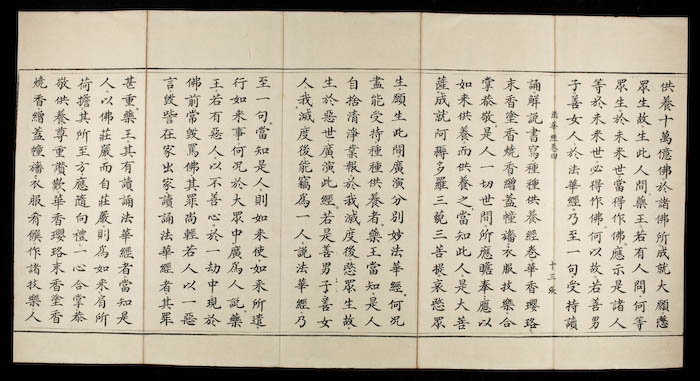 供養十萬億佛於諸佛所成就大願愍
眾生故生此人間藥王若有人問何等
眾生於未來世當得作佛應示是諸人
等於未來世必得作佛何以故若善男
子善女人於法華經乃至一句受持讀
法華經卷四 十三張
誦解說書寫種種供養經卷華香瓔珞
末香塗香燒香繒蓋幢旛衣服技樂合
掌恭敬是人一切世間所應瞻奉應以
如來供養而供養之當知此人是大菩
薩成就阿耨多羅三藐三菩提哀愍眾
生願生此間廣演分別妙法華經何況
盡能受持種種供養者藥王當知是人
自捨清淨業報於我滅度後愍眾生故
生於惡世廣演此經若是善男子善女
人我滅度後能竊為一人說法華經乃
至一句當知是人則如來使如來所遣
行如來事何況於大眾中廣為人說藥
王若有惡人以不善心於一劫中現於
佛前常毀罵佛其罪尚輕若人以一惡
言毀呰在家出家讀誦法華經者其罪
甚重藥王其有讀誦法華經者當知是
人以佛莊嚴而自莊嚴則為如來肩所
荷擔其所至方應隨向禮一心合掌恭
敬供養尊重讚歎華香瓔珞末香塗香
燒香繒蓋幢旛衣服肴饌作諸技樂人